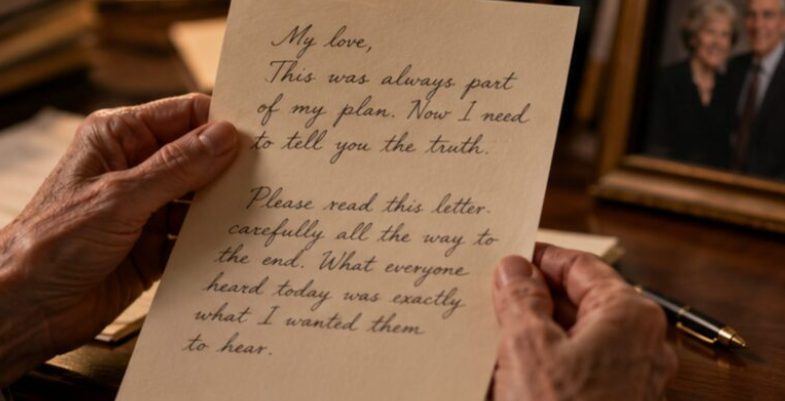 My love,
This was always part
of my plan. Now I need
to tell you the truth.
Please read this letter.
carefully all the way to
the end. What everyone
heard today was exactly
what I wanted them
to hear.